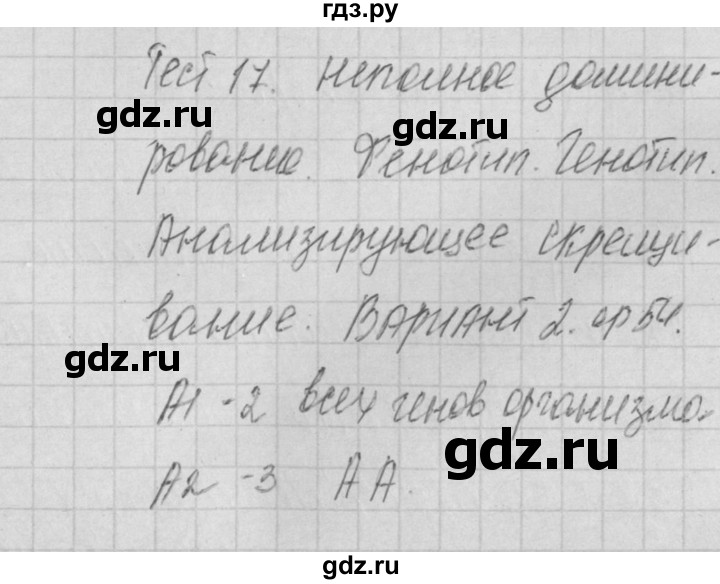 гдз.ру
Тест 17. Неполное домини-
gdz.ru gdz.ru
рование. Фенотип. Генотип.
Анализирующее скрещи-
вание. Вариант 2. ср 54.
gdz.ru
А1 - 2 всех генов организма.
gdz.ru
А2 - 3 АА.
gdz.ru